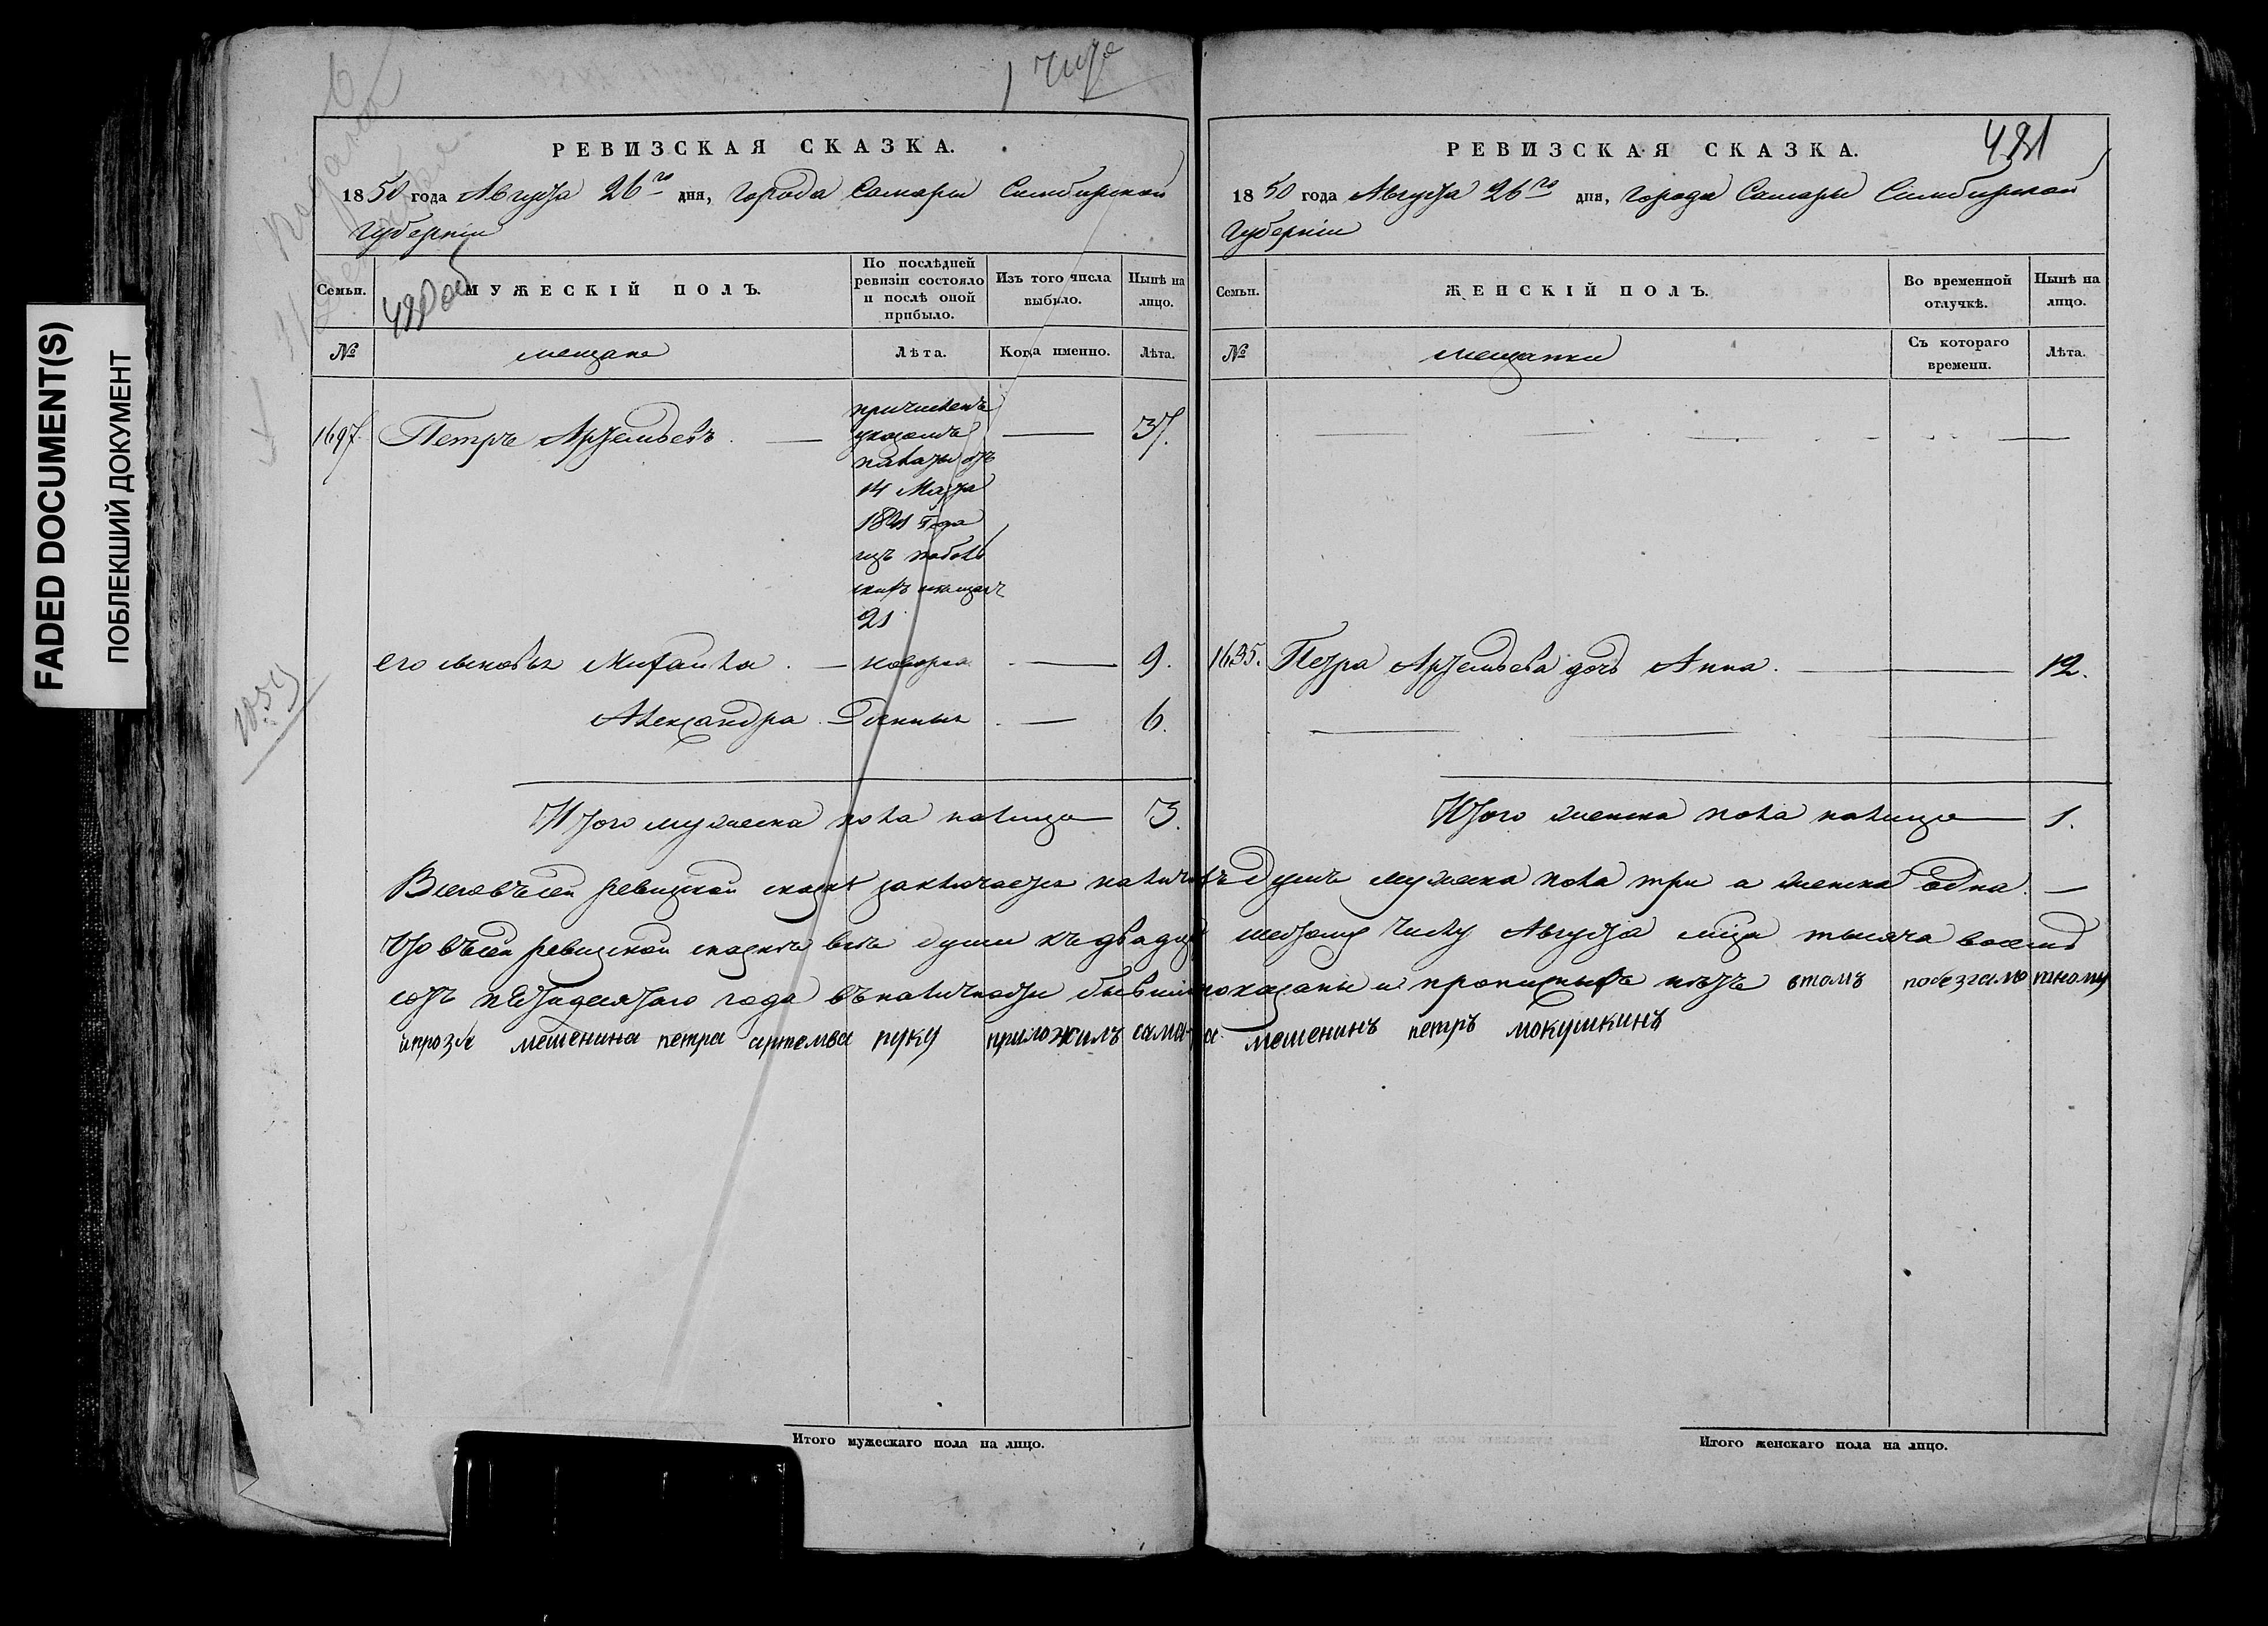 FADED DOCUMENT(S)
ПОБЛЕКШИЙ ДОКУМЕНТ
РЕВИЗСКАЯ СКАЗКА.
1850 года Августа 26го дня, города Самары Симбирской
Губернiи
Семьи.
МУЖЕСКIЙ ПОЛЪ.
По послѣдней ревизiи состояло и послѣ оной прибыло.
Изъ того числа выбыло.
Нынѣ на лицо.
№
мещане
Лѣта.
Когда именно.
Лѣта.
1697.
Петръ Артемьевъ
причисленъ
указомъ
палаты отъ
14 Марта
года
изъ
21
37.
его сыновья Михаила
новорож
9.
Александра
денныя
6.
Итого мужеска пола налицо 3.
1859
РЕВИЗСКАЯ СКАЗКА.
481
1850 года Августа 26го дня, города Самары Симбирской
Губернiи
Семьи.
ЖЕНСКIЙ ПОЛЪ.
Во временной отлучкѣ.
Нынѣ на лицо.
№
мещанки
Съ котораго времени.
Лѣта.
1635. Петра Артемьева дочь Анна. 12.
Итого женска пола налицо 1.
Всего въ сей ревизской сказкѣ заключается наличныхъ душъ мужеска пола три а женска одна.
Что въ сей ревизской сказкѣ всѣ души къ двадцать шестому числу Августа мца тысяча восемь
сотъ пятидесятаго года въ наличности бывшiя показаны и прописныхъ нѣтъ втомъ побезграмотному
ипрозбе мешенина петра артемва руку приложилъ самара мешенинъ петръ мокушкинъ
Итого мужескаго пола на лицо.
Итого женскаго пола на лицо.